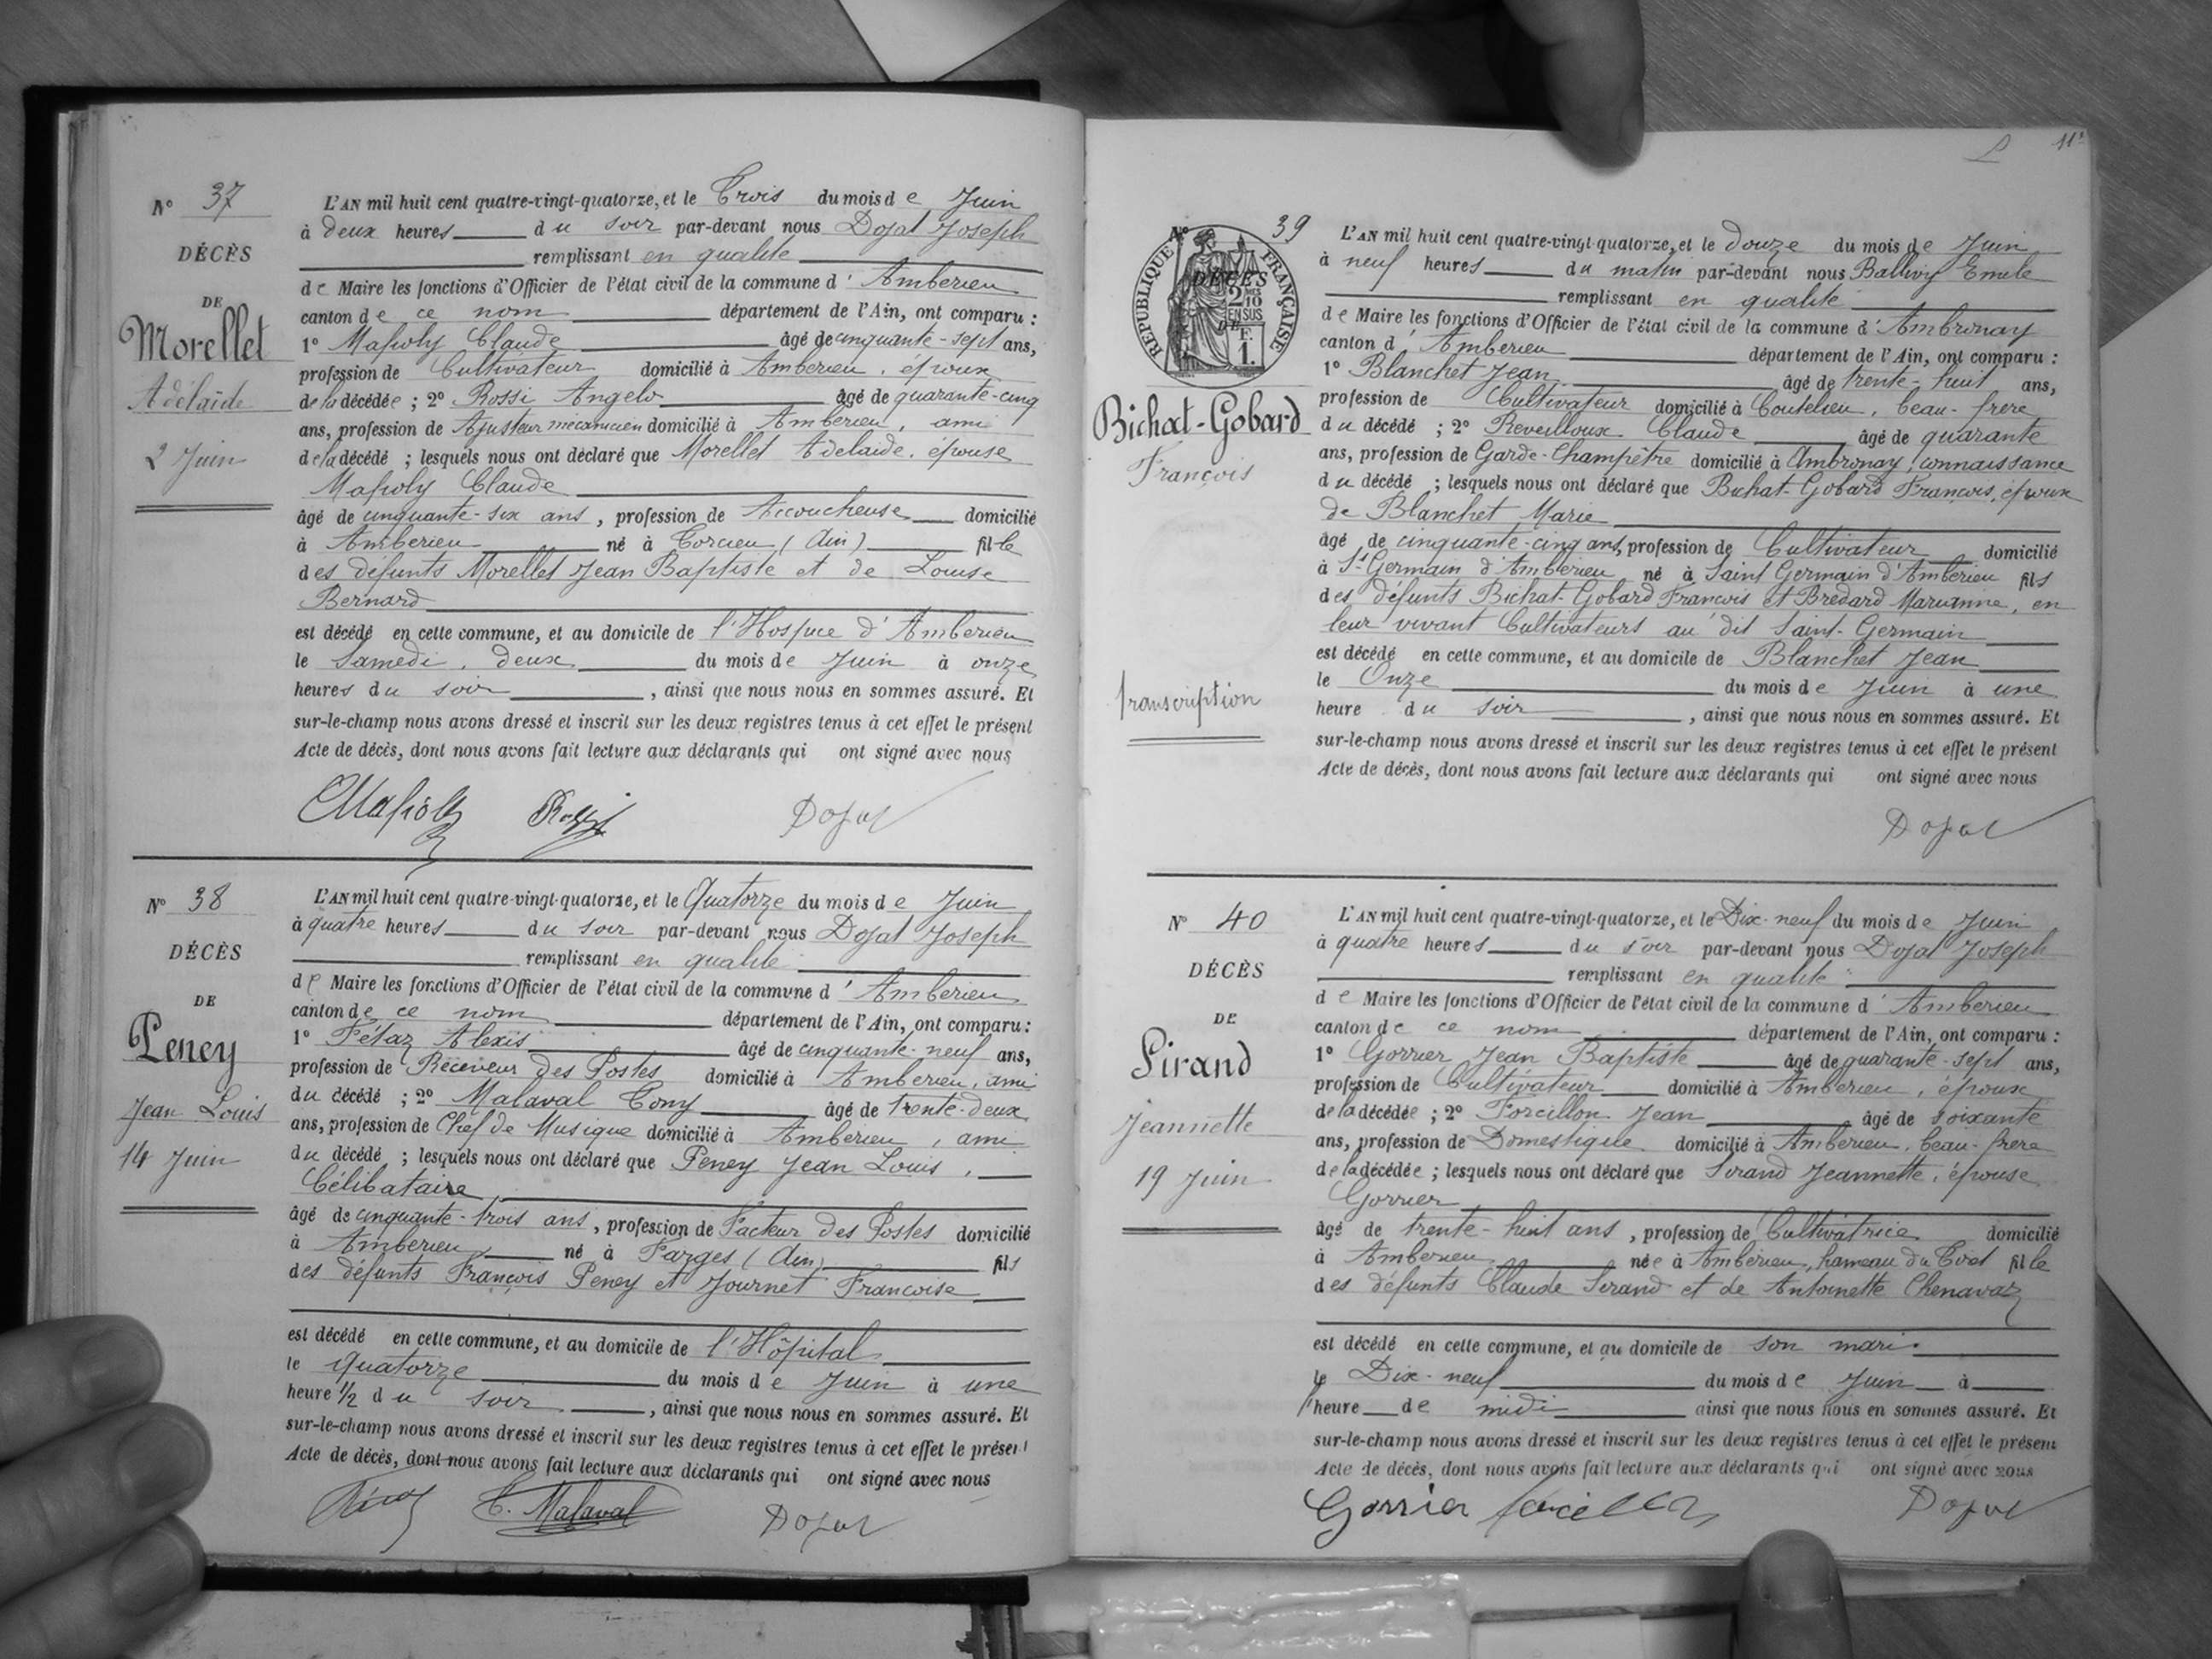 N° 37
DÉCÈS
DE
Morellet
Adélaïde
2 Juin
L'AN mil huit cent quatre-vingt-quatorze, et le Trois du mois de Juin
à deux heures du soir par-devant nous Dojat Joseph
remplissant en qualité
de Maire les fonctions d'Officier de l'état civil de la commune d'Amberieu
canton de ce nom département de l'Ain, ont comparu :
1° Mapoly Claude âgé de cinquante-sept ans,
profession de Cultivateur domicilié à Amberieu, époux
de la décédée ; 2° Rossi Angelo âgé de quarante-cinq
ans, profession de Ajusteur mécanicien domicilié à Amberieu, ami
de la décédé ; lesquels nous ont déclaré que Morellet Adelaide, épouse
Mapoly Claude
âgé de cinquante-six ans, profession de Accoucheuse domicilié
à Amberieu né à Torcieu (Ain) fille
des défunts Morellet Jean Baptiste et de Louise
Bernard
est décédé en cette commune, et au domicile de l'Hospice d'Amberieu
le Samedi, deux du mois de Juin à onze
heures du soir, ainsi que nous nous en sommes assuré. Et
sur-le-champ nous avons dressé et inscrit sur les deux registres tenus à cet effet le présent
Acte de décès, dont nous avons fait lecture aux déclarants qui ont signé avec nous
CMapoly Rossi Dojat
N° 38
DÉCÈS
DE
Peney
Jean Louis
14 Juin
L'AN mil huit cent quatre-vingt-quatorze, et le Quatorze du mois de Juin
à quatre heures du soir par-devant nous Dojat Joseph
remplissant en qualité
de Maire les fonctions d'Officier de l'état civil de la commune d'Amberieu
canton de ce nom département de l'Ain, ont comparu :
1° Fétaz Alexis âgé de cinquante-neuf ans,
profession de Receveur des Postes domicilié à Amberieu, ami
du décédé ; 2° Malaval Tony âgé de trente-deux
ans, profession de Chef de Musique domicilié à Amberieu, ami
du décédé ; lesquels nous ont déclaré que Peney Jean Louis,
Célibataire,
âgé de cinquante-trois ans, profession de Facteur des Postes domicilié
à Amberieu né à Farges (Ain) fils
des défunts François Peney et Journet Francoise
est décédé en cette commune, et au domicile de l'Hôpital
le quatorze du mois de Juin à une
heure 1/2 du soir, ainsi que nous nous en sommes assuré. Et
sur-le-champ nous avons dressé et inscrit sur les deux registres tenus à cet effet le présent
Acte de décès, dont nous avons fait lecture aux déclarants qui ont signé avec nous
T. Malaval Dojat
11
N° 39
RÉPUBLIQUE FRANÇAISE
DÉCÈS
2 10
EN SUS
DE
F.
1.
Bichat-Gobard
François
transcription
L'AN mil huit cent quatre-vingt-quatorze, et le douze du mois de Juin
à neuf heures du matin par-devant nous Ballivy Emile
remplissant en qualité
de Maire les fonctions d'Officier de l'état civil de la commune d'Ambronay
canton d'Amberieu département de l'Ain, ont comparu :
1° Blanchet Jean âgé de trente-huit ans,
profession de Cultivateur domicilié à Coutelieu, beau-frère
du décédé ; 2° Reveilloux Claude âgé de quarante
ans, profession de Garde-Champêtre domicilié à Ambronay, connaissance
du décédé ; lesquels nous ont déclaré que Bichat-Gobard François, époux
de Blanchet Marie
âgé de cinquante-cinq ans, profession de Cultivateur domicilié
à St Germain d'Amberieu né à Saint Germain d'Amberieu fils
des défunts Bichat-Gobard François et Bredard Marianne, en
leur vivant Cultivateurs au dit Saint-Germain
est décédé en cette commune, et au domicile de Blanchet Jean
le Onze du mois de Juin à une
heure du soir, ainsi que nous nous en sommes assuré. Et
sur-le-champ nous avons dressé et inscrit sur les deux registres tenus à cet effet le présent
Acte de décès, dont nous avons fait lecture aux déclarants qui ont signé avec nous
Dojat
N° 40
DÉCÈS
DE
Sirand
Jeannette
19 Juin
L'AN mil huit cent quatre-vingt-quatorze, et le Dix-neuf du mois de Juin
à quatre heures du soir par-devant nous Dojat Joseph
remplissant en qualité
de Maire les fonctions d'Officier de l'état civil de la commune d'Amberieu
canton de ce nom département de l'Ain, ont comparu :
1° Gorrier Jean Baptiste âgé de quarante-sept ans,
profession de Cultivateur domicilié à Amberieu, époux
de la décédée ; 2° Forcillon Jean âgé de soixante
ans, profession de Domestique domicilié à Amberieu, beau-frère
de la décédée ; lesquels nous ont déclaré que Sirand Jeannette, épouse
Gorrier
âgé de trente-huit ans, profession de Cultivatrice domicilié
à Amberieu née à Amberieu, hameau du Tiret fille
des défunts Claude Sirand et de Antoinette Chenavaz
est décédé en cette commune, et au domicile de son mari.
le Dix-neuf du mois de Juin à
l'heure de midi ainsi que nous nous en sommes assuré. Et
sur-le-champ nous avons dressé et inscrit sur les deux registres tenus à cet effet le présent
Acte de décès, dont nous avons fait lecture aux déclarants qui ont signé avec nous
Gorrier Dojat